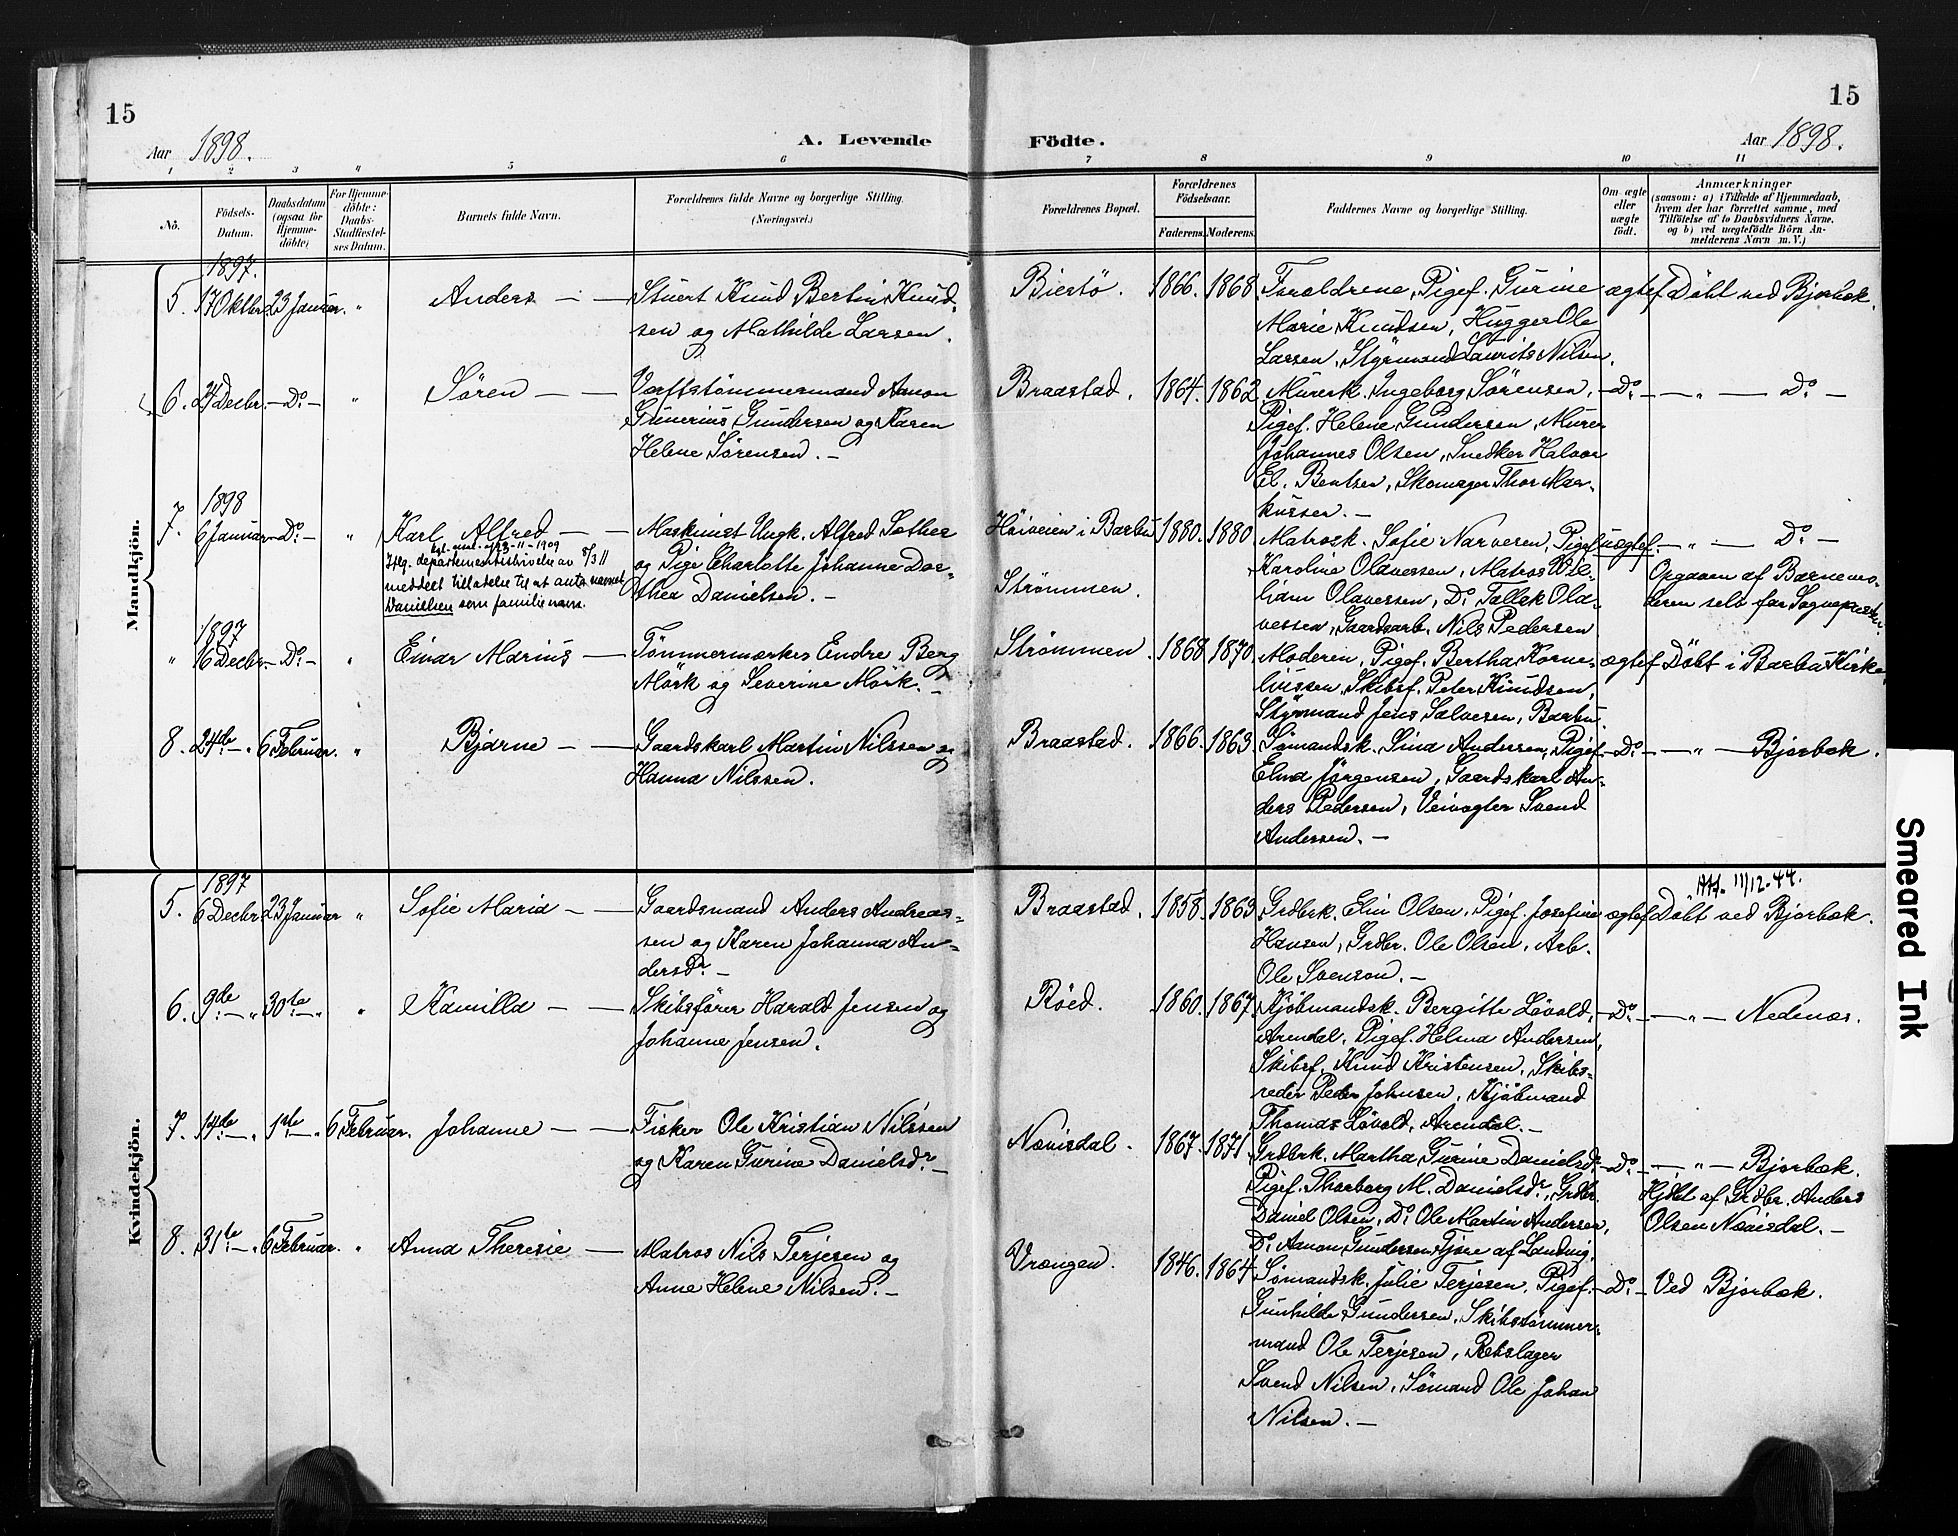 15
15
Aar 1898.
A. Levende
Födte.
Aar 1898.
1 2 3 " 5 6 7 8 9 10 11
No.
Födsels-
Datum.
Daabsdatum
(ogsaa for
Hjemme-
döbte)
For Hjemme-
döbte:
Daabs-
Stadfæstel-
ses Datum.
Barnets fulde Navn.
Forældrenes fulde Navne og borgerlige Stilling.
(Næringsvei.)
Forældrenes Bopæl.
Forældrenes
Födselsaar.
Faderens. Moderens.
Faddernes Navne og borgerlige Stilling.
Om ægte
eller
uægte
födt.
Anmærkninger
(saasom: a) i Tilfælde af Hjemmedaab,
hvem der har forrettet samme, med
Tilföielse af to Daabsvidners Navne.
og b) ved uægtefödte Börn An-
melderens Navn m. V.)
Mandkjön.
1897.
5. 17 Oktbr. 23 Januar. " Anders — —
Stuert Knud Bertin Knud-
sen og Mathilde Larsen.
Biertö. 1866. 1868.
Forældrene, Pigef. Gurine
Marie Knudsen, Hugger Ole
Larsen, Styrmand Laurits Nilsen.
ægtef. Döbt ved Bjorbæk.
6. 24 Decbr. — Do — " Sören — —
Værftstømmermand Aanon
Gunerius Gundersen og Karen
Helene Sørensen. —
Braastad. 1864. 1862.
Murerk. Ingeborg Sørensen,
Pigef. Helene Gundersen, Murer
Johannes Olsen, Snedker Halvor
El. Bentzen, Skomager Thor Mar-
kussen. —
— Do — " — Do —
1898
7. 6 Januar — Do — " Karl Alfred — —
kgl. anl. af 23-11-1909
Iflg. departementsskrivelse av 8/3 11
meddelt tilladelse til at anta navnet
Danielsen som familienavn.
Maskinist Ungk. Alfred Sother
og Pige Charlotte Johanne Dor-
thea Danielsen. —
Höiveien i Barbu
Strømmen.
1880. 1880.
Matrosk. Sofie Narvesen, Pigef.
Karoline Olavessen, Matros Wil-
liam Olavessen, Do Tallak Ola-
vessen, Gaardsarb. Nils Pedersen
uægtef. — " — Do —
Opgaven af Barnemo-
deren selv for Sognepresten.
1897
" 16 Decbr. — Do — " Einar Marius —
Tømmermærker Endre Berg
Mörk og Severine Mörk. —
Strömmen. 1868. 1870.
Moderen, Pigef. Bertha Korne-
liussen, Skibsf. Peter Knudsen,
Styrmand Jens Salvesen, Barbu.
ægtef. Döbt i Barbu Kirke.
8. 24de — " 6 Februar. " Bjarne — —
Gaardskarl Martin Nilssen og
Hanna Nilssen.
Braastad. 1866. 1863.
Sømandsk. Sina Andersen, Pigef.
Elina Jørgensen, Gaardskarl An-
ders Pedersen, Veivogter Svend
Andersen. —
— Do — " — Bjorbæk.
Kvindekjön.
1897
5. 6 Decbr. 23 Januar " Sofie Maria — —
Gaardsmand Anders Andreas-
sen og Karen Johanna An-
dersdr. —
Braastad. 1858. 1863.
Grdbrk. Elin Olsen, Pigef. Josefine
Hansen, Grdbr. Ole Olsen, Arb.
Ole Svenson. —
Att. 11/12-44.
ægtef. Döbt ved Bjorbæk.
6. 9de — " 30te — " " Kamilla — —
Skibsfører Harald Jensen og
Johanne Jensen.
Röed. 1860. 1867.
Kjöbmandsk. Bergitte Lövold,
Arendal, Pigef. Helma Andersen,
Skibsf. Knud Kristensen, Skibs-
reder Peder Johnsen, Kjöbmand
Thomas Lövold, Arendal. —
— Do — " — Nedenæs.
7. 14de — " 1ste — " 6 Februar. Johanne — —
Fisker Ole Kristian Nilssen
og Karen Gurine Danielsdr. —
Næviasdal. 1867. 1871.
Grdbrk. Martha Gurine Danielsdr
Pigef. Thorborg M. Danielsdr., Grdbr.
Daniel Olsen, Do Ole Martin Andersen,
Do Aanon Gundersen Fjære af Landvig.
— Do — " — Bjorbæk.
Hjdbt af Grdbr. Anders
Olsen Nævisdal. —
8. 31te — " 6 Februar. " Anna Theresie —
Matros Nils Terjesen og
Anne Helene Nilsen. —
Vrængen. 1846. 1864.
Sømandsk. Julie Terjesen, Pigef.
Gunhilde Gundersen, Skibstømmer-
mand Ole Terjesen, Rebslager
Svend Nilsen, Sømand Ole Johan
Nilsen. —
— Do — Ved Bjorbæk.
Smeared Ink